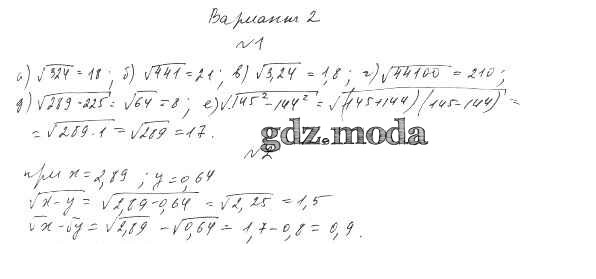 Вариант 2
№1
а) √324 = 18; б) √441 = 21; в) √3,24 = 1,8; г) √44100 = 210;
д) √289-225 = √64 = 8; е) √145²-144² = √(145+144)(145-144) =
= √289·1 = √289 = 17.
gdz.moda
№2
при x = 2,89; y = 0,64
√x-y = √2,89-0,64 = √2,25 = 1,5
√x-√y = √2,89 - √0,64 = 1,7-0,8 = 0,9.